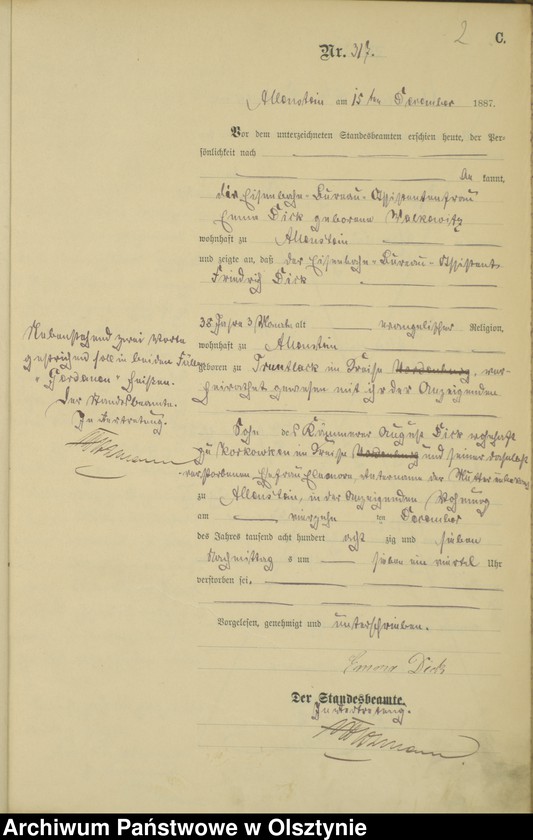 2
C.
Nr. 317.
Allenstein am 15ten December 1887.
Vor dem unterzeichneten Standesbeamten erschien heute, der Per-
sönlichkeit nach
kannt,
die Eisenbahn-Büreau-Assistentenfrau
Emma Dick geborene Walkowitz
wohnhaft zu Allenstein
und zeigte an, daß der Eisenbahn-Büreau-Assistent
Friedrich Dick
38 Jahre 3 Monate alt evangelischer Religion,
wohnhaft zu Allenstein
geboren zu Truntlack im Kreise Nordenburg, ver-
heirathet gewesen mit ihr der Anzeigenden
Sohn des Kämmerer August Dick wohnhaft
zu Korkowken im Kreise Nordenburg und seiner daselbst
verstorbenen Ehefrau Eleonore, Vatername der Mutter unbekannt
zu Allenstein, in der Anzeigenden Wohnung
am vierzehn ten December
des Jahres tausend acht hundert acht zig und sieben
Nachmittag s um sieben ein viertel Uhr
verstorben sei.
Vorgelesen, genehmigt und unterschrieben.
Emma Dick
Der Standesbeamte.
In Vertretung.
Nebenstehend zwei Worte
gestrichen soll in beiden Fällen
"Gerdauen" heissen.
Der Standesbeamte.
In Vertretung.
Archiwum Państwowe w Olsztynie